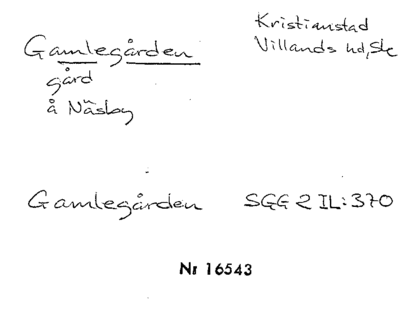 Gamlegården
gård
å Näsby
Kristianstad
Villands hd, Sk
Gamlegården SGG 2 IL:370
Nr 16543